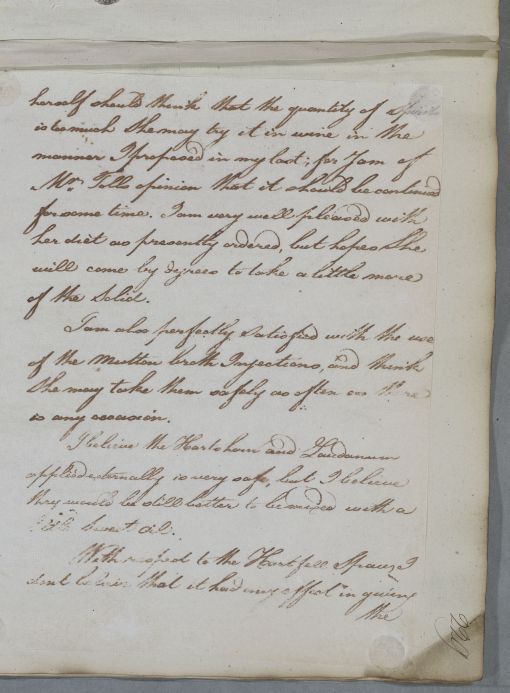 herself should think that the quantity of Spirits
is too much she may try it in wine in the
manner I proposed in my last; for I am of
Mr. Fells opinion that it should be continued
for some time. I am very well pleased with
her diet as presently ordered, but hopes she
will come by degrees to take a little more
of the Solid.
I am also perfectly satisfied with the use
of the Mutton broth Injections, and think
she may take them safely as often as there
is any occasion.
I believe the Hartshorn and Laudanum
applied externally is very safe, but I believe
they would be still better to be mixed with a
little Sweet oil.
With respect to the Hartfell Spaw I
dont believe that it had any effect in giving
the